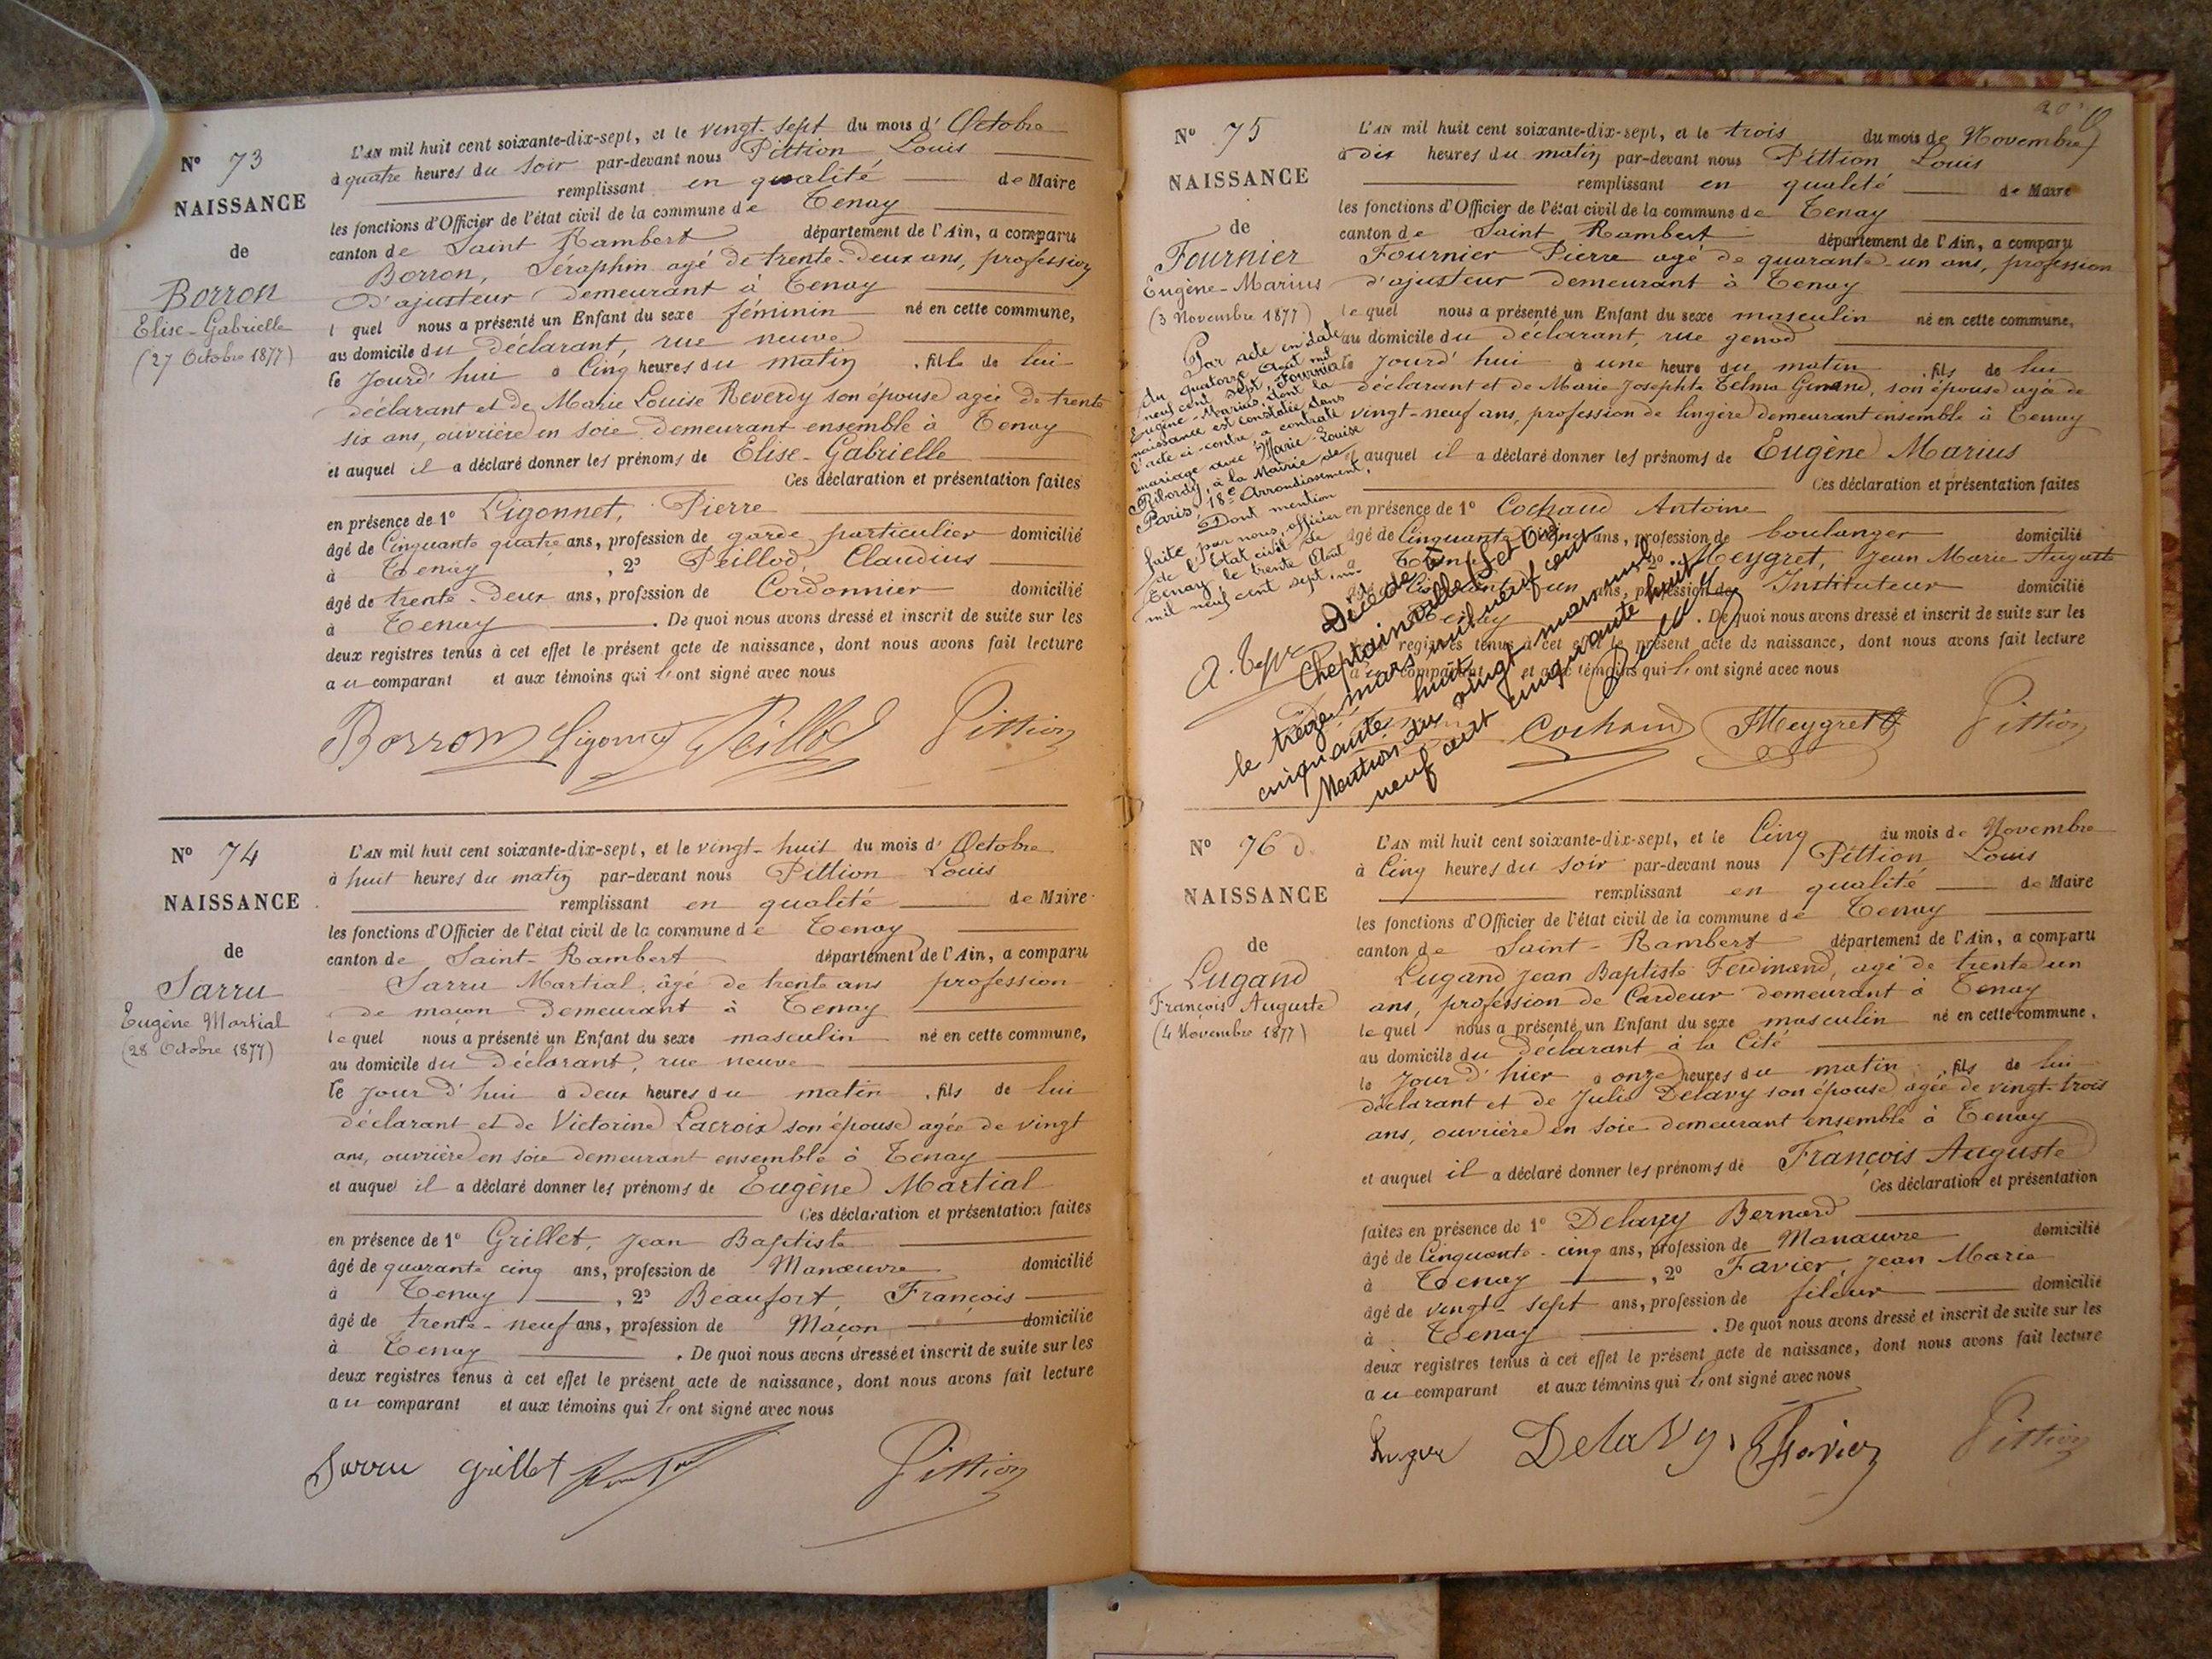 N° 73
NAISSANCE
de
Borron
Elise-Gabrielle
(27 Octobre 1877)
L'AN mil huit cent soixante-dix-sept, et le vingt-sept du mois d'Octobre
à quatre heures du soir par-devant nous Pittion Louis
remplissant en qualité de Maire
les fonctions d'Officier de l'état civil de la commune de Tenay
canton de Saint Rambert département de l'Ain, a comparu
Borron, Séraphin agé de trente-deux ans, profession
d'ajusteur demeurant à Tenay
l quel nous a présenté un Enfant du sexe féminin né en cette commune,
au domicile du déclarant, rue neuve
le jourd'hui à Cinq heures du matin, fille de lui
déclarant et de Marie Louise Reverdy son épouse agée de trente
six ans, ouvrière en soie demeurant ensemble à Tenay
et auquel il a déclaré donner les prénoms de Elise-Gabrielle
Ces déclaration et présentation faites
en présence de 1° Ligonnet, Pierre
âgé de Cinquante quatre ans, profession de garde particulier domicilié
à Tenay, 2° Peillod, Claudius
âgé de trente-deux ans, profession de Cordonnier domicilié
à Tenay. De quoi nous avons dressé et inscrit de suite sur les
deux registres tenus à cet effet le présent acte de naissance, dont nous avons fait lecture
au comparant et aux témoins qui l'ont signé avec nous
Borron Ligonnet Peillod Pittion
N° 74
NAISSANCE
de
Sarru
Eugène Martial
(28 Octobre 1877)
L'AN mil huit cent soixante-dix-sept, et le vingt-huit du mois d'Octobre
à huit heures du matin par-devant nous Pittion Louis
remplissant en qualité de Maire
les fonctions d'Officier de l'état civil de la commune de Tenay
canton de Saint-Rambert département de l'Ain, a comparu
Sarru Martial, âgé de trente ans profession
de maçon demeurant à Tenay
lequel nous a présenté un Enfant du sexe masculin né en cette commune,
au domicile du déclarant, rue neuve
le jourd'hui à deux heures du matin, fils de lui
déclarant et de Victorine Lacroix son épouse agée de vingt
ans, ouvrière en soie demeurant ensemble à Tenay
et auquel il a déclaré donner les prénoms de Eugène Martial
Ces déclaration et présentation faites
en présence de 1° Grillet, Jean Baptiste
âgé de quarante cinq ans, profession de Manœuvre domicilié
à Tenay, 2° Beaufort, François
âgé de trente-neuf ans, profession de Maçon domicilié
à Tenay. De quoi nous avons dressé et inscrit de suite sur les
deux registres tenus à cet effet le présent acte de naissance, dont nous avons fait lecture
au comparant et aux témoins qui l'ont signé avec nous
Sarru Grillet Pittion
N° 75
NAISSANCE
de
Fournier
Eugène-Marius
(3 Novembre 1877)
Par acte en date
du quatorze Août mil
neuf cent sept, Fournier
Eugène-Marius, dont la
naissance est constatée dans
l'acte ci-contre, a contracté
mariage avec Marie-Louise
Ribordy, à la Mairie de
Paris, 18e Arrondissement.
Dont mention
faite par nous, officier
de l'Etat civil de
Tenay le trente Août
mil neuf cent sept.
Décédé à
Cheptainville (S et O)
le treize mars mil neuf cent
cinquante huit
Mention du vingt mars mil
neuf cent cinquante huit
L'AN mil huit cent soixante-dix-sept, et le trois du mois de Novembre
à dix heures du matin par-devant nous Pittion Louis
remplissant en qualité de Maire
les fonctions d'Officier de l'état civil de la commune de Tenay
canton de Saint Rambert département de l'Ain, a comparu
Fournier Pierre agé de quarante-un ans, profession
d'ajusteur demeurant à Tenay
lequel nous a présenté un Enfant du sexe masculin né en cette commune,
au domicile du déclarant, rue genod
le jourd'hui à une heure du matin, fils de lui
déclarant et de Marie Josephte Telma son épouse agée de
vingt-neuf ans, profession de lingère demeurant ensemble à Tenay
et auquel il a déclaré donner les prénoms de Eugène Marius
Ces déclaration et présentation faites
en présence de 1° Cochand Antoine
âgé de Cinquante ans, profession de boulanger domicilié
à Tenay, 2° Meygret, Jean Marie Auguste
un ans, profession de Instituteur domicilié
à Tenay. De quoi nous avons dressé et inscrit de suite sur les
registres tenus à cet effet le présent acte de naissance, dont nous avons fait lecture
au comparant et aux témoins qui l'ont signé avec nous
Cochand Meygret Pittion
N° 76
NAISSANCE
de
Lugand
François Auguste
(4 Novembre 1877)
L'AN mil huit cent soixante-dix-sept, et le Cinq du mois de Novembre
à Cinq heures du soir par-devant nous Pittion Louis
remplissant en qualité de Maire
les fonctions d'Officier de l'état civil de la commune de Tenay
canton de Saint-Rambert département de l'Ain, a comparu
Lugand Jean Baptiste Ferdinand, agé de trente un
ans, profession de Cardeur demeurant à Tenay
lequel nous a présenté un Enfant du sexe masculin né en cette commune,
au domicile du déclarant à la Cité
le jour d'hier à onze heures du matin, fils de lui
déclarant et de Julie Delavy son épouse agée de vingt-trois
ans, ouvrière en soie demeurant ensemble à Tenay
et auquel il a déclaré donner les prénoms de François Auguste
Ces déclaration et présentation
faites en présence de 1° Delavy Bernard
âgé de Cinquante-cinq ans, profession de Manœuvre domicilié
à Tenay, 2° Favier, Jean Marie
âgé de vingt-sept ans, profession de fileur domicilié
à Tenay. De quoi nous avons dressé et inscrit de suite sur les
deux registres tenus à cet effet le présent acte de naissance, dont nous avons fait lecture
au comparant et aux témoins qui l'ont signé avec nous
Delavy Favier Pittion